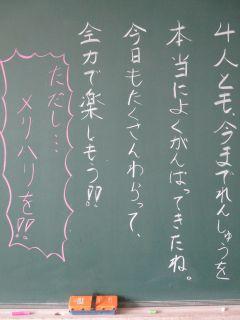 4人とも、今までれんしゅうを
本当によくがんばってきたね。
今日もたくさんわらって、
全力で楽しもう!!
ただし…
メリハリを!!